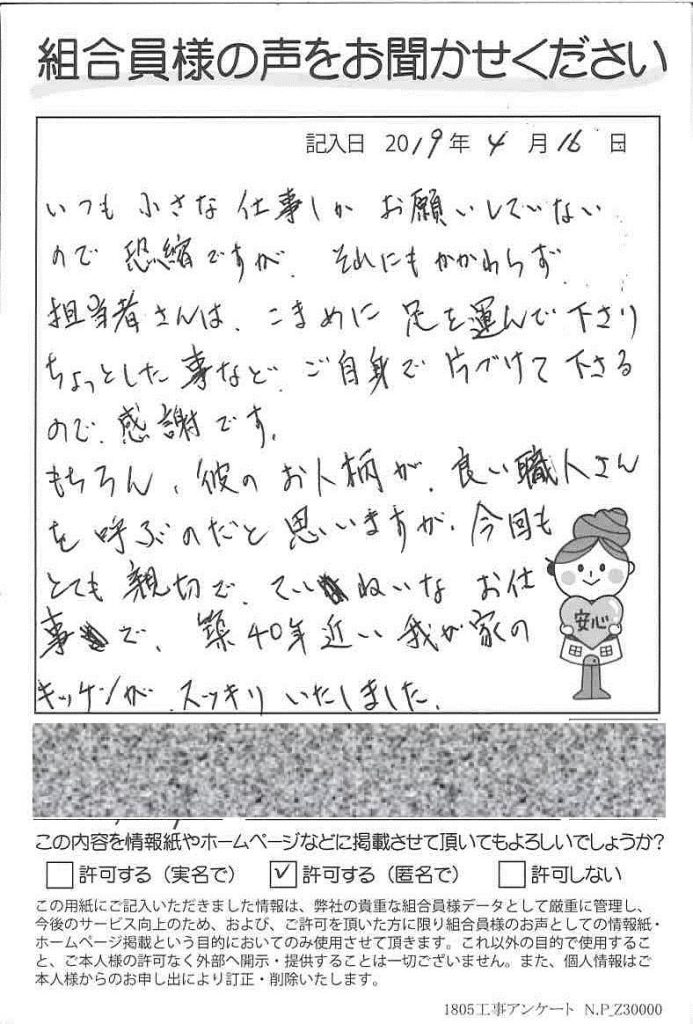 組合員様の声をお聞かせください
記入日 2019年 4月 16日
いつも 小さな 仕事しか お願いしていない
ので 恐縮ですが、それにもかかわらず
担当者さんは、こまめに 足を運んで下さり
ちょっとした事など、ご自身で片づけて下さる
ので、感謝です。
もちろん、彼の お人柄が、良い職人さん
を 呼ぶのだと 思いますが、今回も
とても 親切で、ていねいな お仕
事で、築40年近い 我が家の
キッチンが、スッキリ いたしました。
安心
この内容を情報紙やホームページなどに掲載させて頂いてもよろしいでしょうか?
□許可する（実名で） ☑許可する（匿名で） □許可しない
この用紙にご記入いただきました情報は、弊社の貴重な組合員様データとして厳重に管理し、
今後のサービス向上のため、および、ご許可を頂いた方に限り組合員様のお声としての情報紙・
ホームページ掲載という目的においてのみ使用させて頂きます。これ以外の目的で使用するこ
と、ご本人様の許可なく外部へ開示・提供することは一切ございません。また、個人情報はご
本人様からのお申し出により訂正・削除いたします。
1805工事アンケート N.P_Z30000